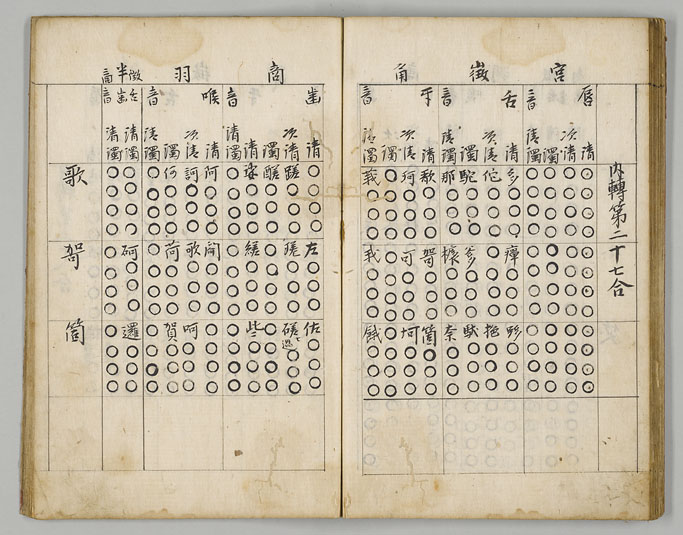 内轉第二十七合
宮
唇音
清
次清
濁
清濁
徴
舌音
清 多 癉
次清 佗 拖
濁 駝 爹 馱
清濁 那 橠 奈
角
牙音
清 歌 哿 箇
次清 珂 可 坷
濁
清濁 莪 我 餓
商
齒音
清 左 佐
次清 蹉 瑳 磋
濁 醝
清 娑 縒 些
濁
羽
喉音
清 阿 閜
次清 訶 歌 呵
濁 何 荷 賀
清濁
半徴商
舌齒音
清濁 砢 邏
清濁
歌
哿
箇